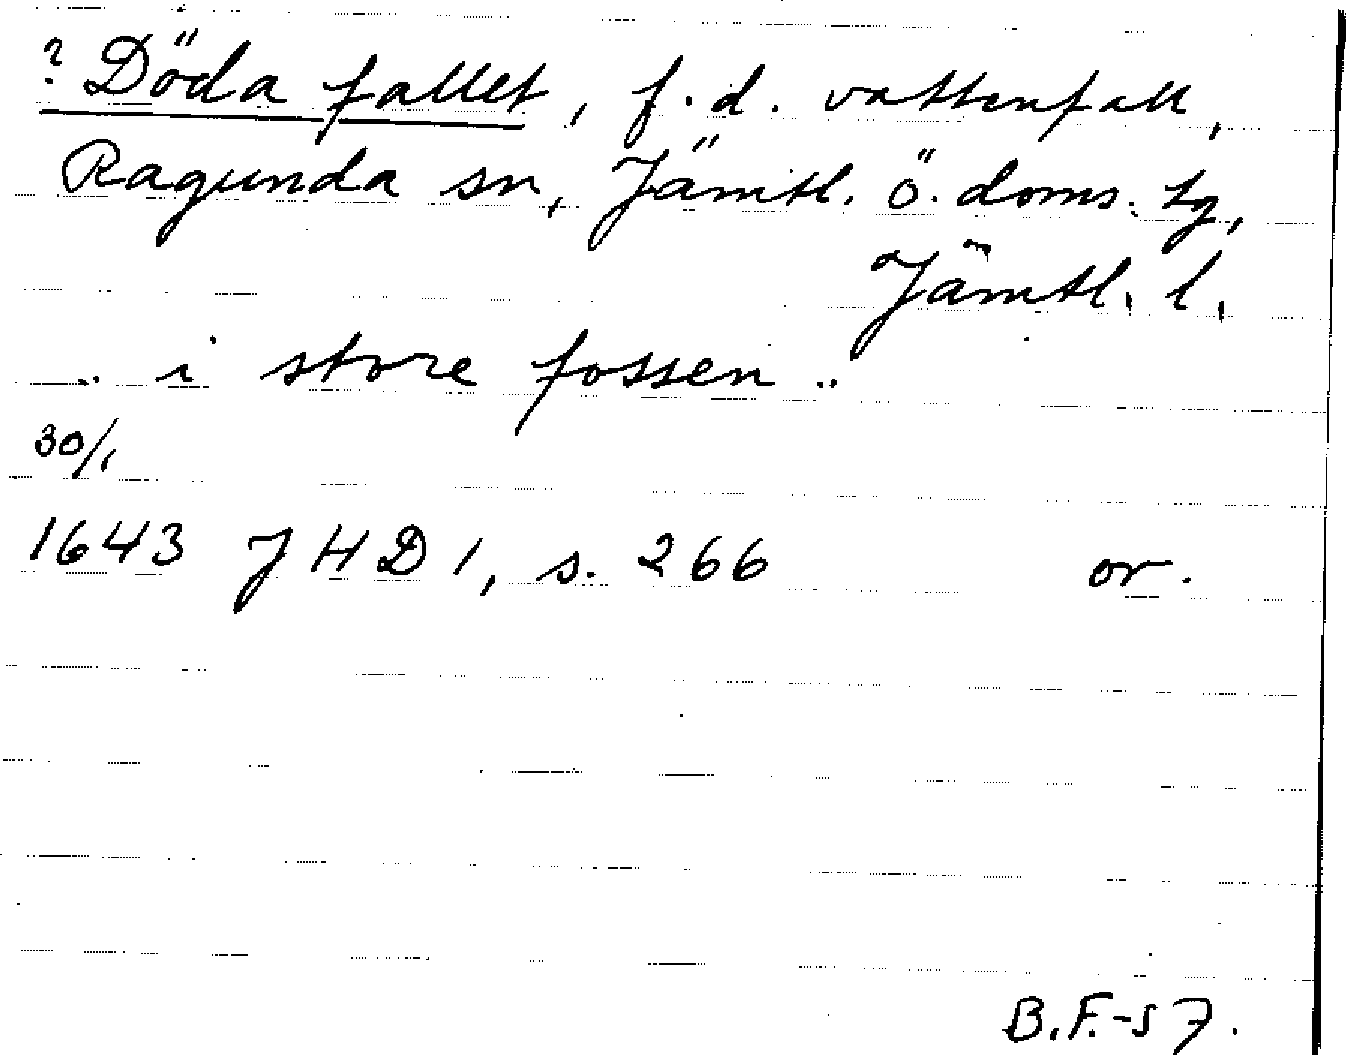 ? Döda fallet, f.d. vattenfall,
Ragunda sn, Jämtl. ö. doms. tg,
Jämtl. l.
.. i store fossen ..
30/1
1643 JHD 1, s. 266 or.
B.F.-57.